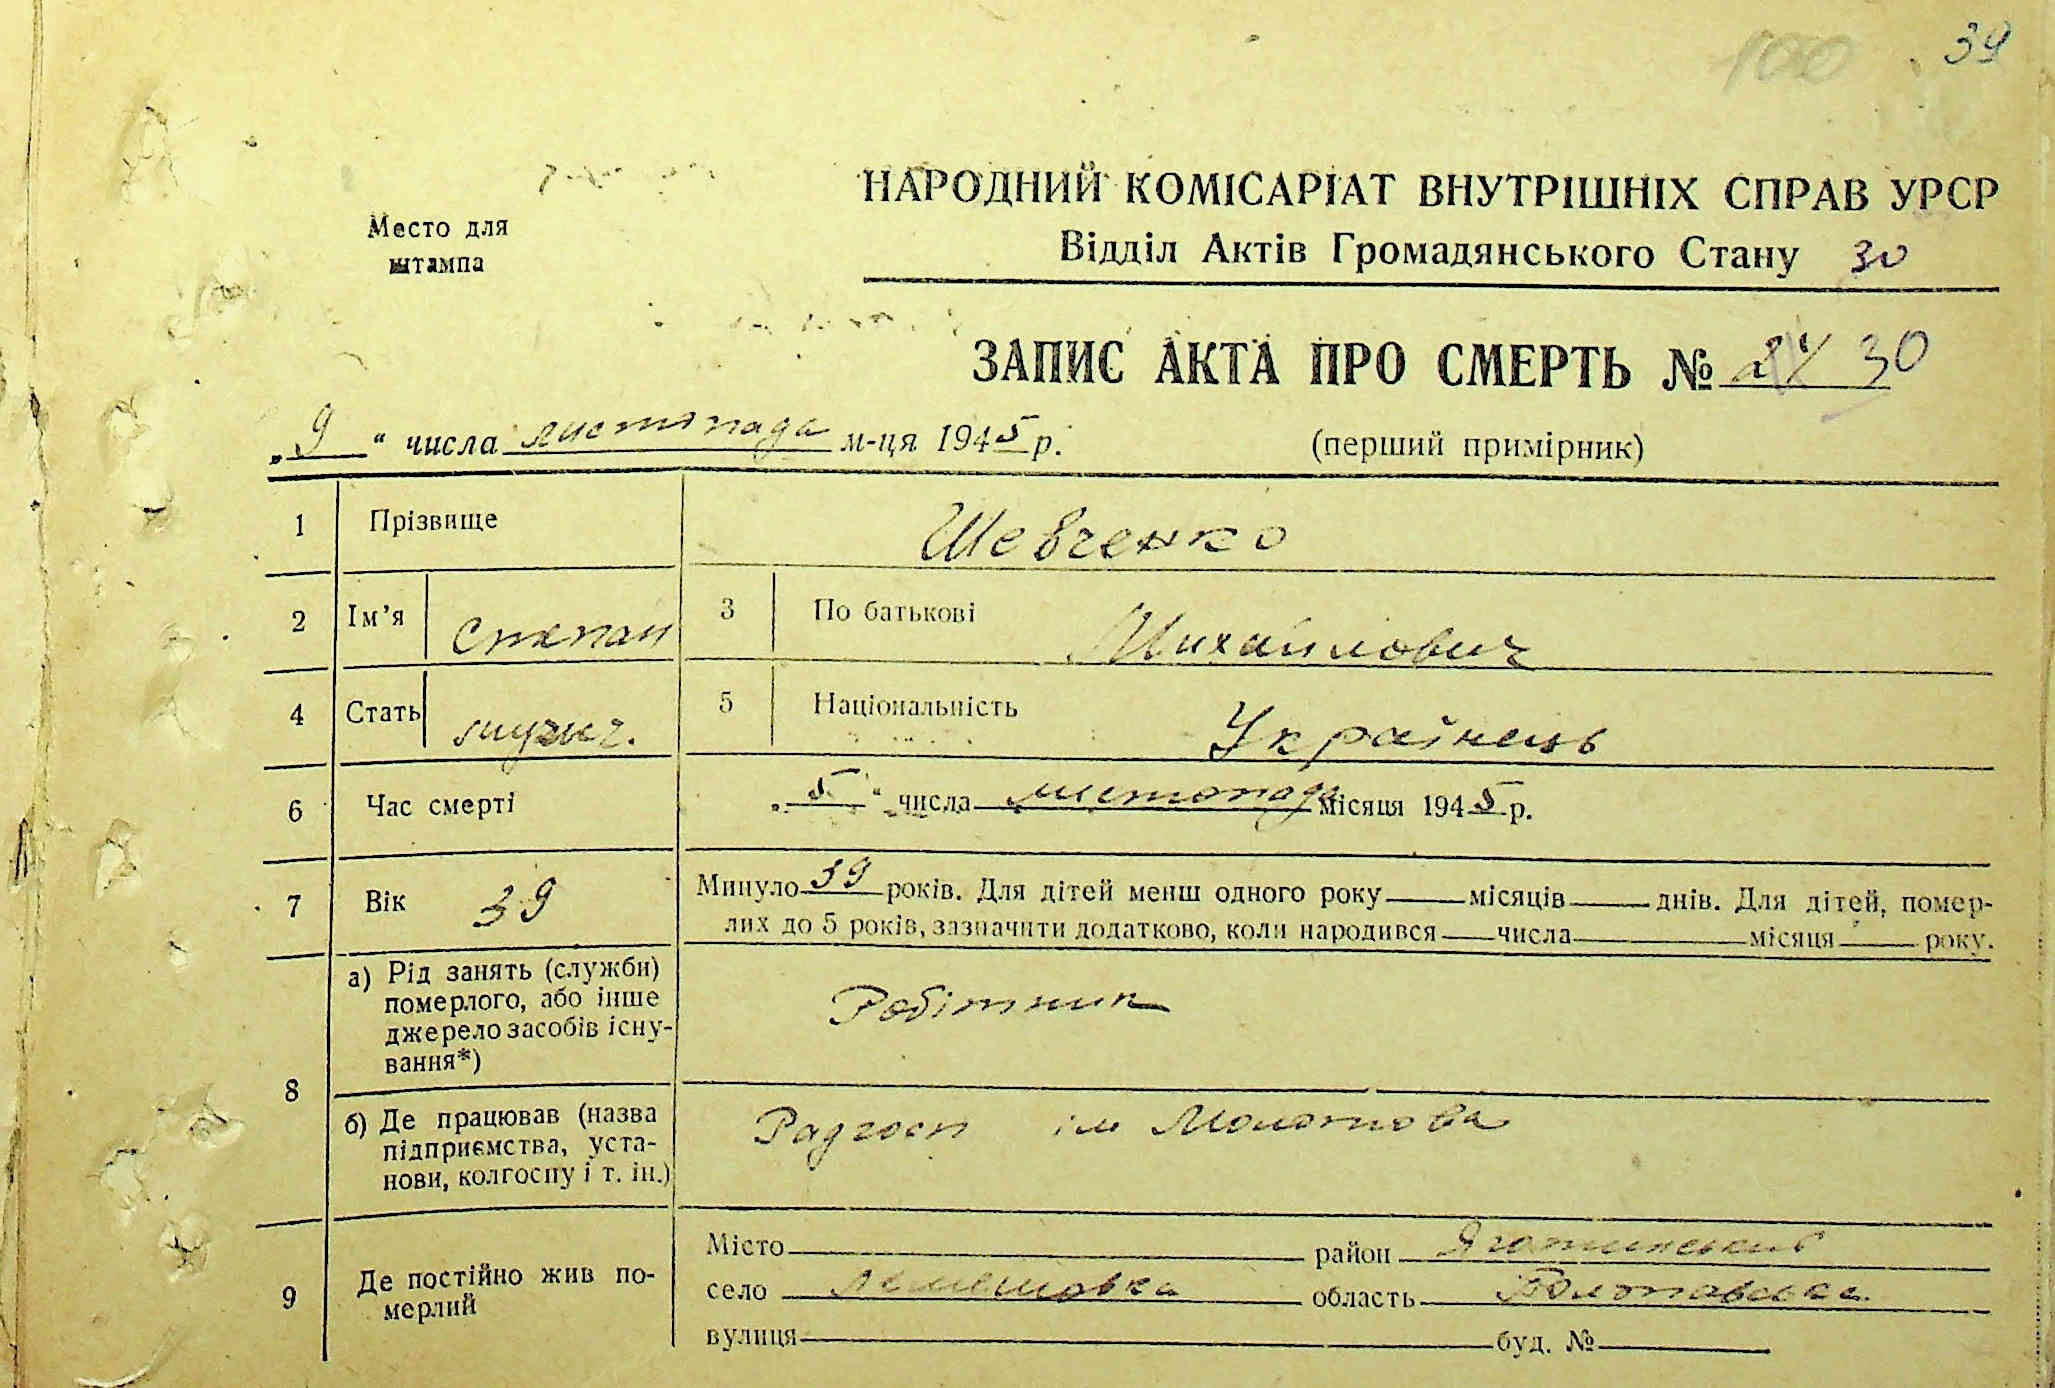 100 39
НАРОДНИЙ КОМІСАРІАТ ВНУТРІШНІХ СПРАВ УРСР
Место для штампа
Відділ Актів Громадянського Стану 30
ЗАПИС АКТА ПРО СМЕРТЬ № 30
„9" числа листопада м-ця 1945 р. (перший примірник)
1 Прізвище Шевченко
2 Ім'я Степан 3 По батькові Михайлович
4 Стать мужич. 5 Національність Українець
6 Час смерті „5" числа листопада місяця 1945 р.
7 Вік 39 Минуло 39 років. Для дітей менш одного року місяців днів. Для дітей, помер-
лих до 5 років, зазначити додатково, коли народився числа місяця року.
8 а) Рід занять (служби)
померлого, або інше
джерело засобів існу-
вання*) Робітник
б) Де працював (назва
підприємства, уста-
нови, колгоспу і т. ін.) Радгосп ім Молотова
9 Де постійно жив по-
мерлий
Місто район Яготинський
село Лемешовка область Полтавська
вулиця буд. №